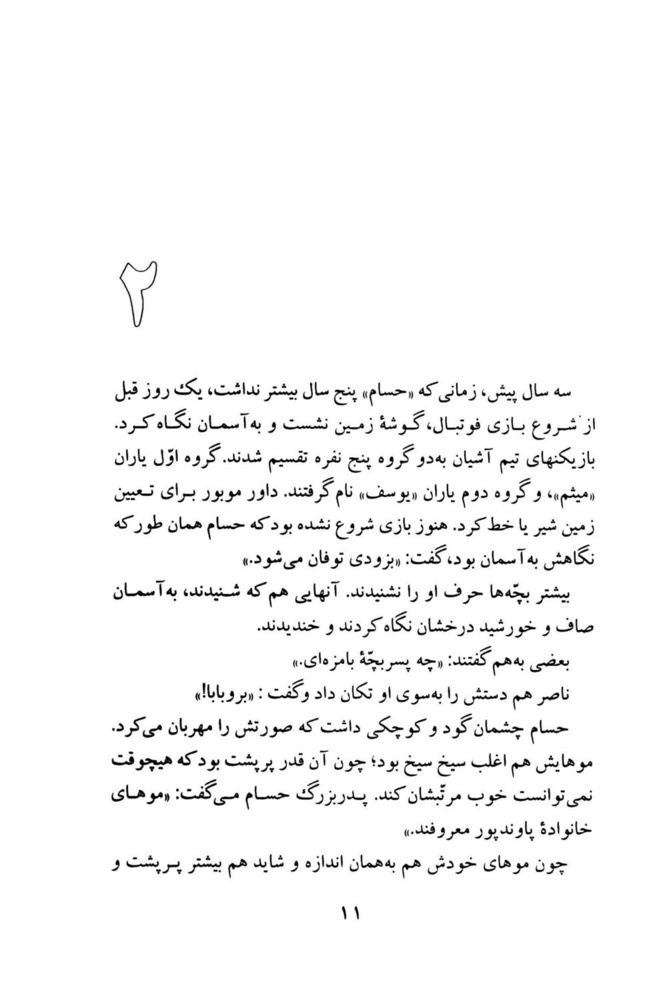 ۲
سه سال پیش، زمانی که «حسام» پنج سال بیشتر نداشت، یک روز قبل
از شروع بازی فوتبال، گوشهٔ زمین نشست و به‌آسمان نگاه کرد.
بازیکنهای تیم آشیان به‌دو گروه پنج نفره تقسیم شدند. گروه اوّل یاران
«میثم»، و گروه دوم یاران «یوسف» نام گرفتند. داور موبور برای تعیین
زمین شیر یا خط کرد. هنوز بازی شروع نشده بود که حسام همان طور که
نگاهش به‌آسمان بود، گفت: «بزودی توفان می‌شود.»
بیشتر بچّه‌ها حرف او را نشنیدند. آنهایی هم که شنیدند، به‌آسمان
صاف و خورشید درخشان نگاه کردند و خندیدند.
بعضی به‌هم گفتند: «چه پسربچّهٔ بامزه‌ای.»
ناصر هم دستش را به‌سوی او تکان داد وگفت : «بروبابا!»
حسام چشمان گود و کوچکی داشت که صورتش را مهربان می‌کرد.
موهایش هم اغلب سیخ سیخ بود؛ چون آن قدر پرپشت بود که هیچوقت
نمی‌توانست خوب مرتّبشان کند. پدربزرگ حسام می‌گفت: «موهای
خانوادهٔ پاوندپور معروفند.»
چون موهای خودش هم به‌همان اندازه و شاید هم بیشتر پرپشت و
۱۱